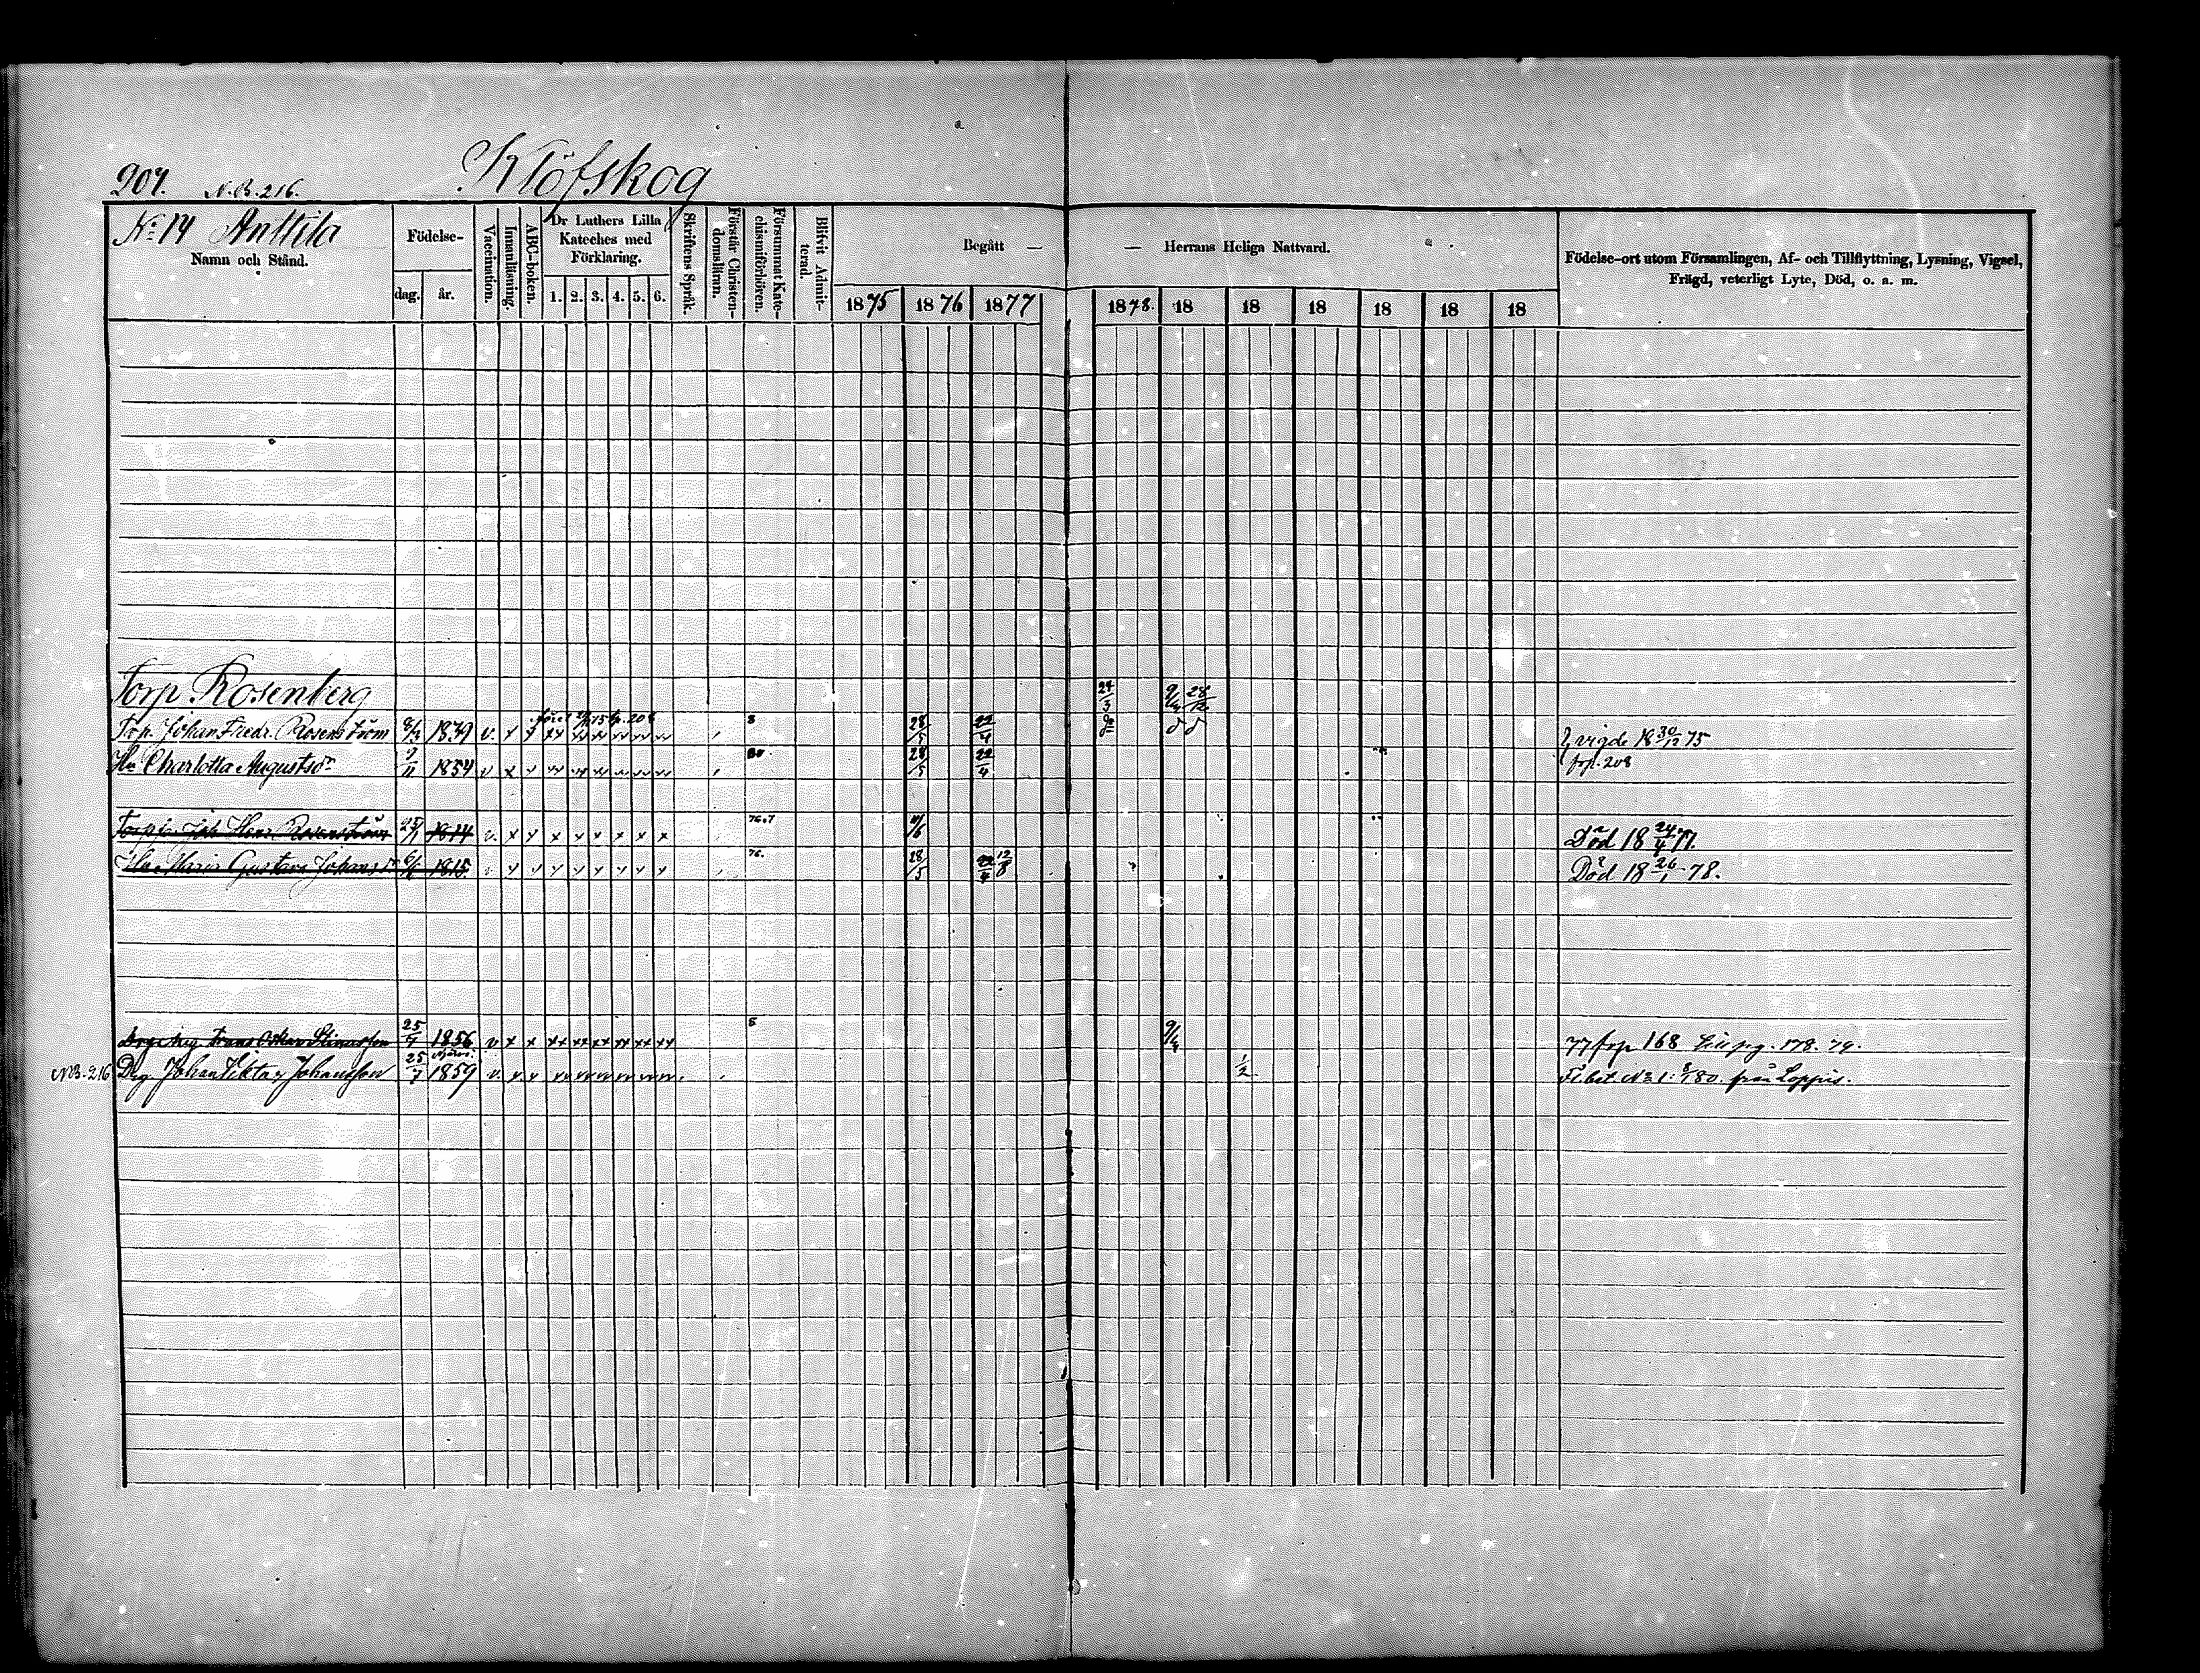 207. N.B. 216. Klöfskog
No 14 Anttila
Namn och Stånd.
Födelse-
dag. år.
Vaccination.
Innanläsning.
ABC-boken.
Dr Luthers Lilla Kateches med Förklaring.
1. 2. 3. 4. 5. 6.
Skriftens Språk.
Förstår Christendomsläran.
Försummat Katechismiförhören.
Blifvit Admitterad.
Begått — — Herrans Heliga Nattvard.
1875 1876 1877 1878. 18 18 18 18 18 18
Födelse-ort utom Församlingen, Af- och Tillflyttning, Lysning, Vigsel,
Frägd, veterligt Lyte, Död, o. a. m.
Torp Rosenberg 27/3 9/4 28/12
Torp. Johan Fredr. Rosenström 8/2 1849 v. x x 8 28/5 22/4 vigde 18 30/12 75
Hu Charlotta Augustsdr 9/11 1854 v x 28/5 22/4 frp. 208
Torp. Joh. Henr. Rosenström 25/1 1814 v. x x x x x x x x 76.7 Död 18 24/4 77.
Hu Maria Gustava Johansdr 6/2 1815 76. 28/5 22/4 12/8 Död 18 26/1 78.
Frans Oskar 25/7 1856 v x x xx xx xx xx xx xx 8 9/4 77 frp 168 178. 79.
N.B. 216 Drg Johan Viktor Johansson 25/7 1859 v. 1/2 Fl. bet No 1: 80. från Loppis.